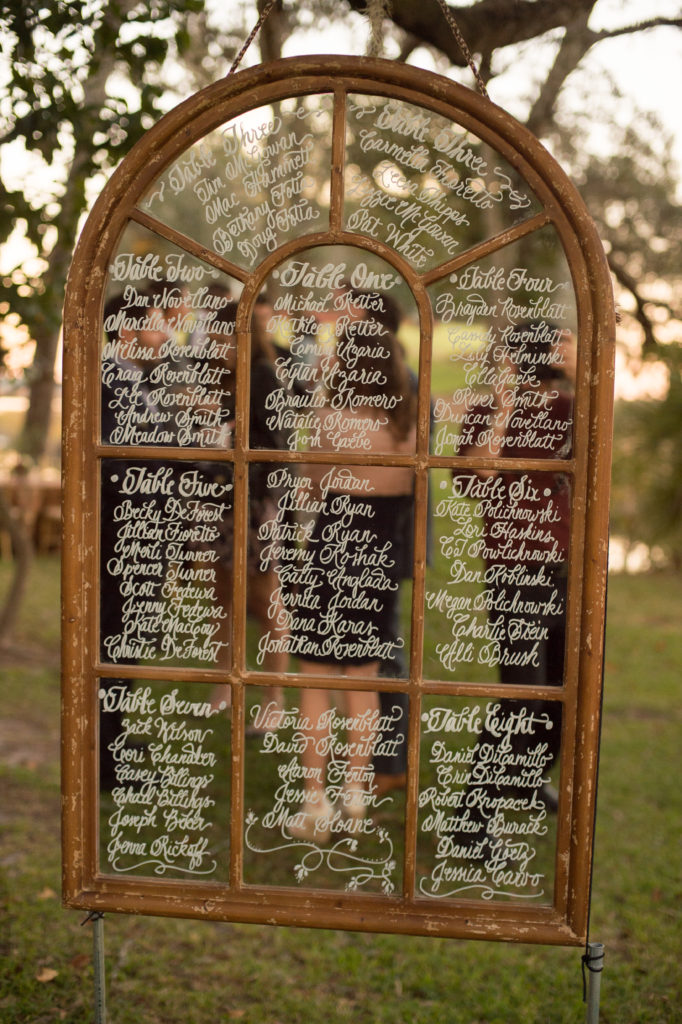 Table Three
Tim McGowan
Mac Hammett
Bethany Totta
Doug Totta
Table Three
Carmella Fiorello
Phipps
McGowan
Pat White
Table Two
Dan Novellano
Marcella Novellano
Melissa Rosenblatt
Craig Rosenblatt
Lee Rosenblatt
Andrew Smith
Meadow Smith
Table One
Michail Retter
Kathleen Retter
Corney Azaria
Eytan Azaria
Braulio Romero
Natalie Romero
Tom Gaebe
Table Four
Brayden Rosenblatt
Rosenblatt
Helminski
Elle Gaebe
River Smith
Duncan Novellano
Jonah Rosenblatt
Table Five
Becky DeForest
Jillian Fioretto
Merli Turner
Spencer Turner
Scott Fedewa
Jenny Fedewa
Kate MacCoy
Christie DeForest
Pryor Jordan
Jillian Ryan
Patrick Ryan
Jeremy Koshak
Caity Anglada
Jerrita Jordan
Dana Karas
Jonathan Rosenblatt
Table Six
Kate Polichnowski
Lori Haskins
CJ Powlichrowski
Dan Koblinski
Megan Polichrowski
Charlie Stein
Alli Brush
Table Seven
Zack Wilson
Lori Chandler
Casey Billings
Chad Billings
Joseph Beker
Jenna Rickoff
Victoria Rosenblatt
David Rosenblatt
Aaron Fenton
Jessie Fenton
Matt Sloane
Table Eight
Daniel DiCamillo
Erin DiCamillo
Robert Kropacek
Matthew Burack
Daniel Goetz
Jessica Calvo